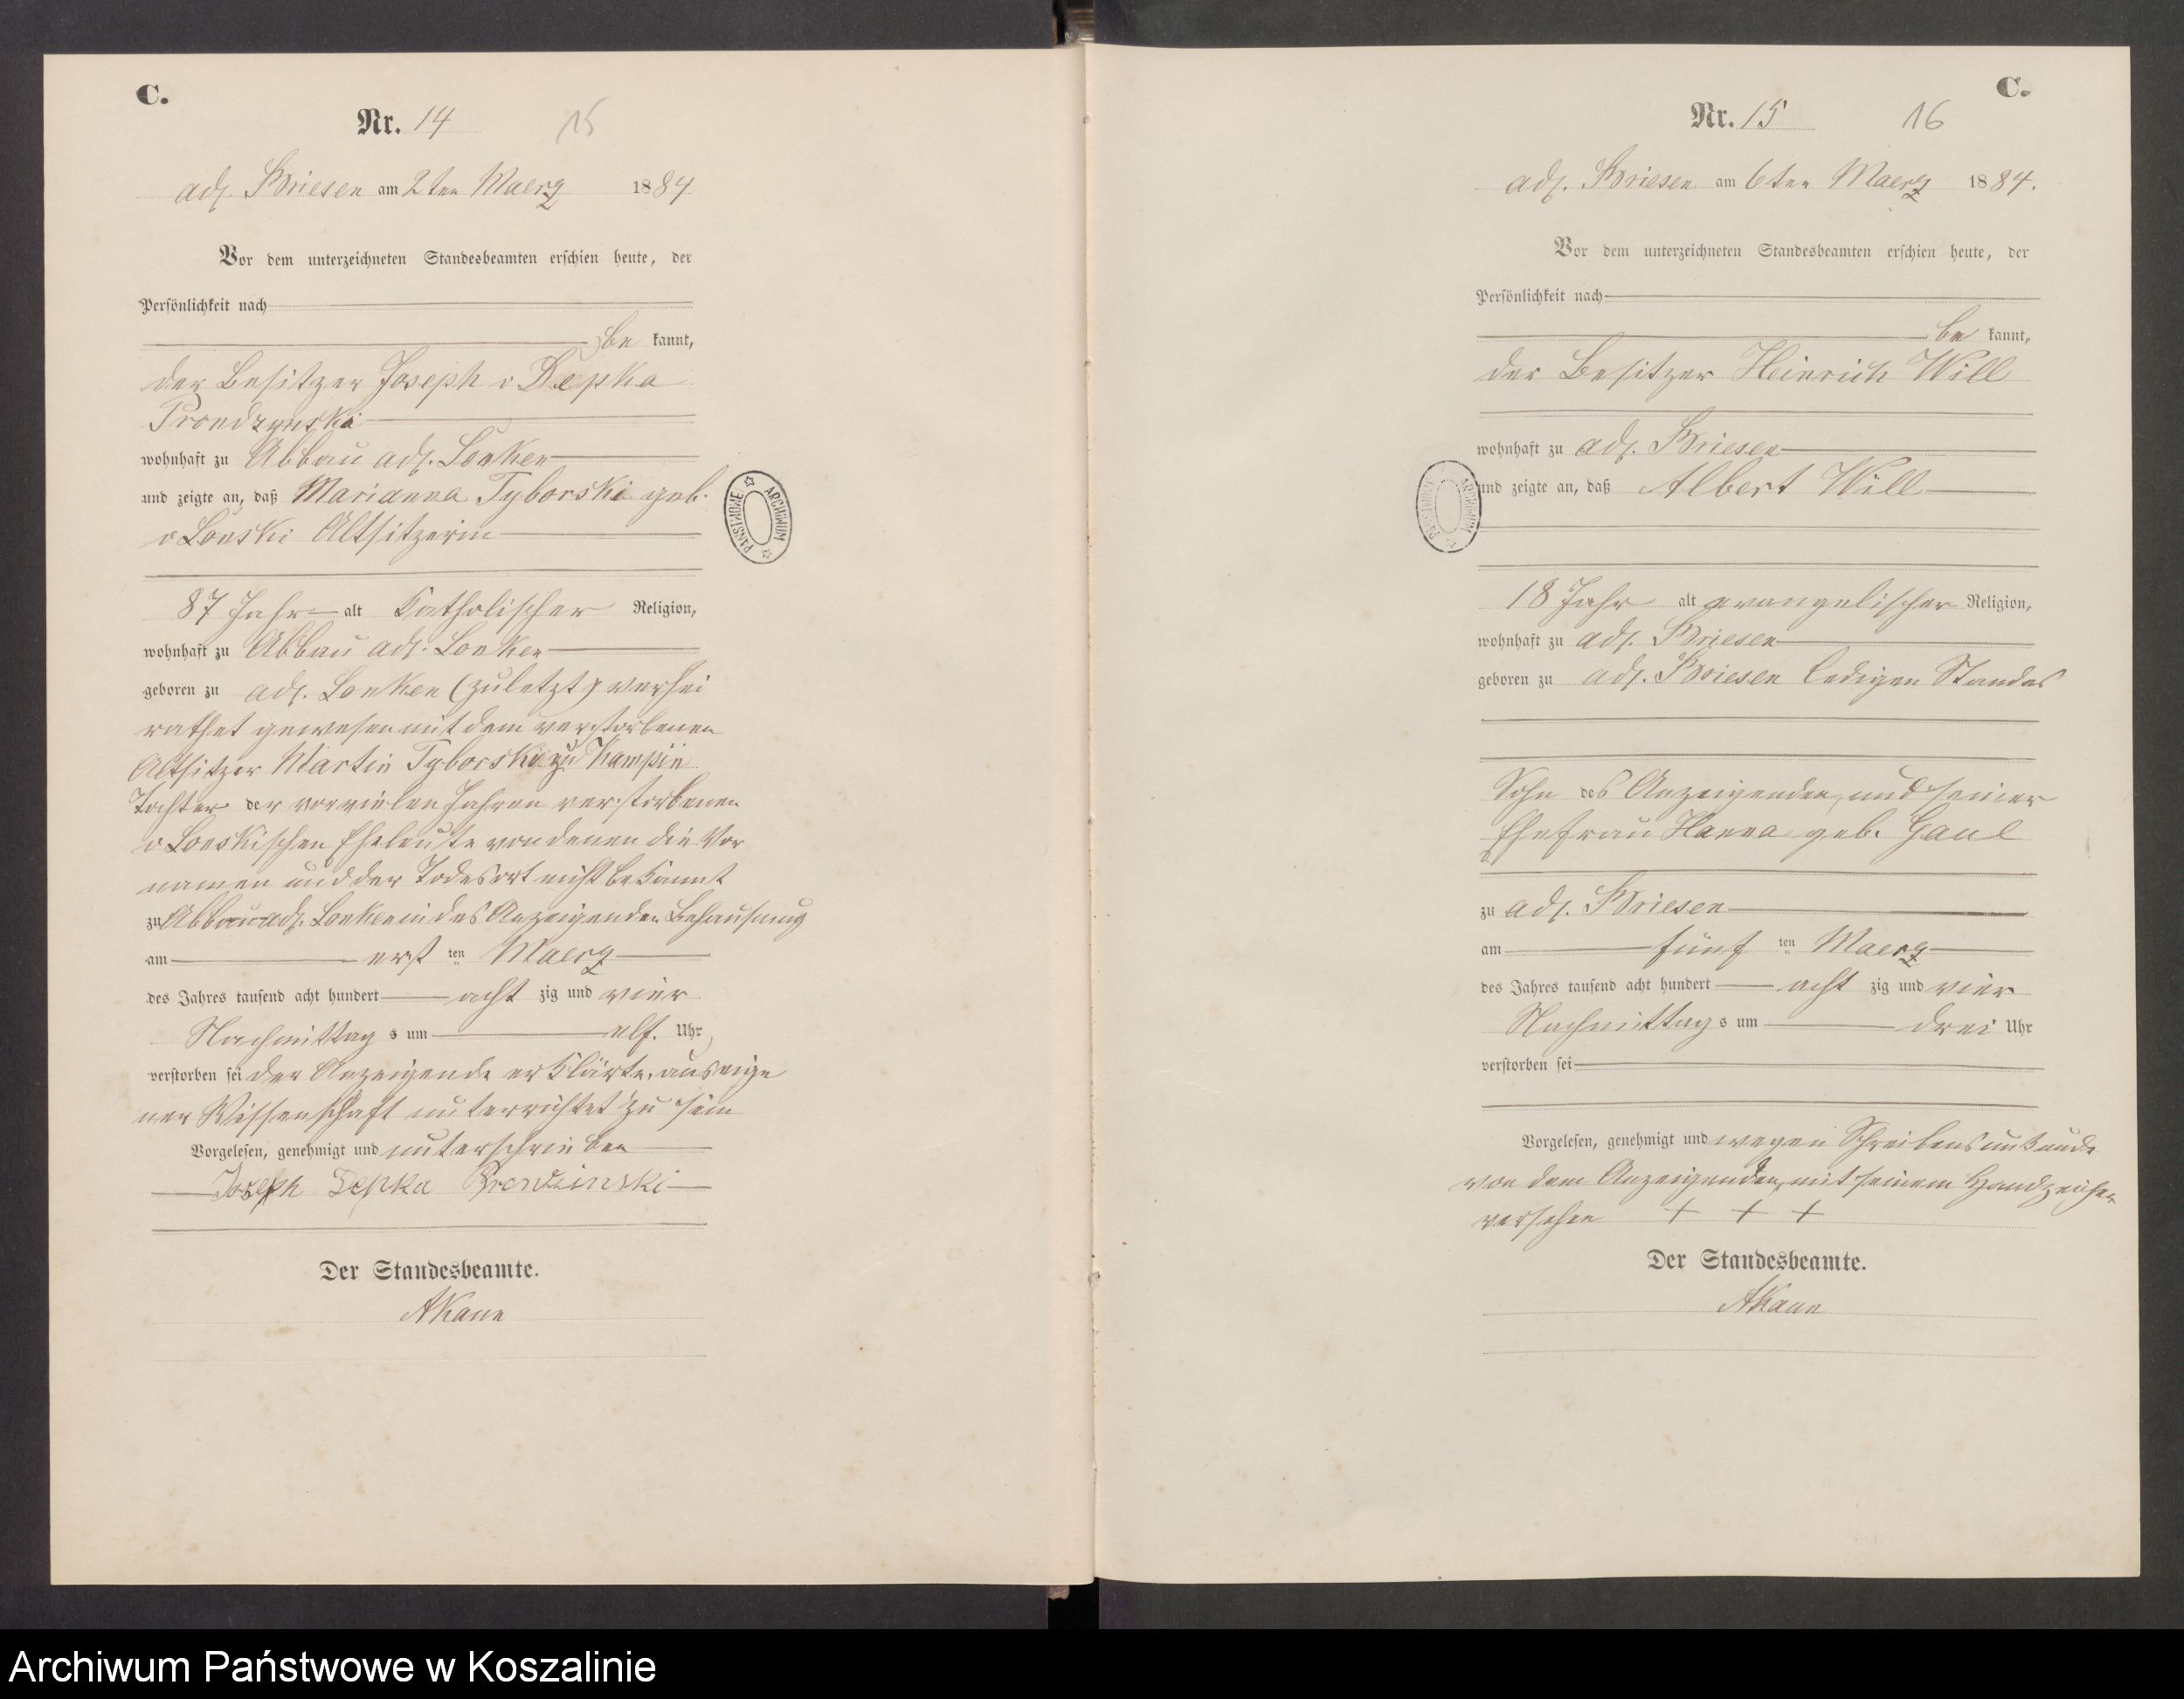 C.
Nr. 14
15
adl. Briesen am 2ten Maerz 1884
Vor dem unterzeichneten Standesbeamten erschien heute, der
Persönlichkeit nach
be kannt,
der Besitzer Joseph v Depka
Prondzynski
wohnhaft zu Abbau adl. Lonken
und zeigte an, daß Marianna Tyborski geb.
v Lonski Altsitzerin
87 Jahr alt Katholischer Religion,
wohnhaft zu Abbau adl. Lonken
geboren zu adl. Lonken (zuletzt) verhei
rathet gewesen mit dem verstorbenen
Altsitzer Martin Tyborski zu Kampin
Tochter der vor vielen Jahren verstorbenen
v Lonskischen Eheleute von denen die Vor
namen und der Todesort nicht bekannt
zu Abbau adl. Lonken in des Anzeigenden Behausung
am erst ten Maerz
des Jahres tausend acht hundert acht zig und vier
Nachmittag s um elf. Uhr,
verstorben sei der Anzeigende erklärte, aus eige
ner Wissenschaft unterrichtet zu sein
Vorgelesen, genehmigt und unterschrieben
Joseph Depka Prondzinski
Der Standesbeamte.
AKaun
C.
Nr. 15
16
adl. Briesen am 6ten Maerz 1884.
Vor dem unterzeichneten Standesbeamten erschien heute, der
Persönlichkeit nach
be kannt,
der Besitzer Heinrich Will
wohnhaft zu adl. Briesen
und zeigte an, daß Albert Will
18 Jahr alt evangelischer Religion,
wohnhaft zu adl. Briesen
geboren zu adl. Briesen ledigen Standes
Sohn des Anzeigenden, und seiner
Ehefrau Hanna geb. Gaul
zu adl. Briesen
am fünf ten Maerz
des Jahres tausend acht hundert acht zig und vier
Nachmittag s um drei Uhr
verstorben sei
Vorgelesen, genehmigt und wegen Schreibensunkunde
von dem Anzeigenden, mit seinem Handzeichen
versehen + + +
Der Standesbeamte.
AKaun
ARCHIWUM PAŃSTWOWE
ARCHIWUM PAŃSTWOWE
Archiwum Państwowe w Koszalinie